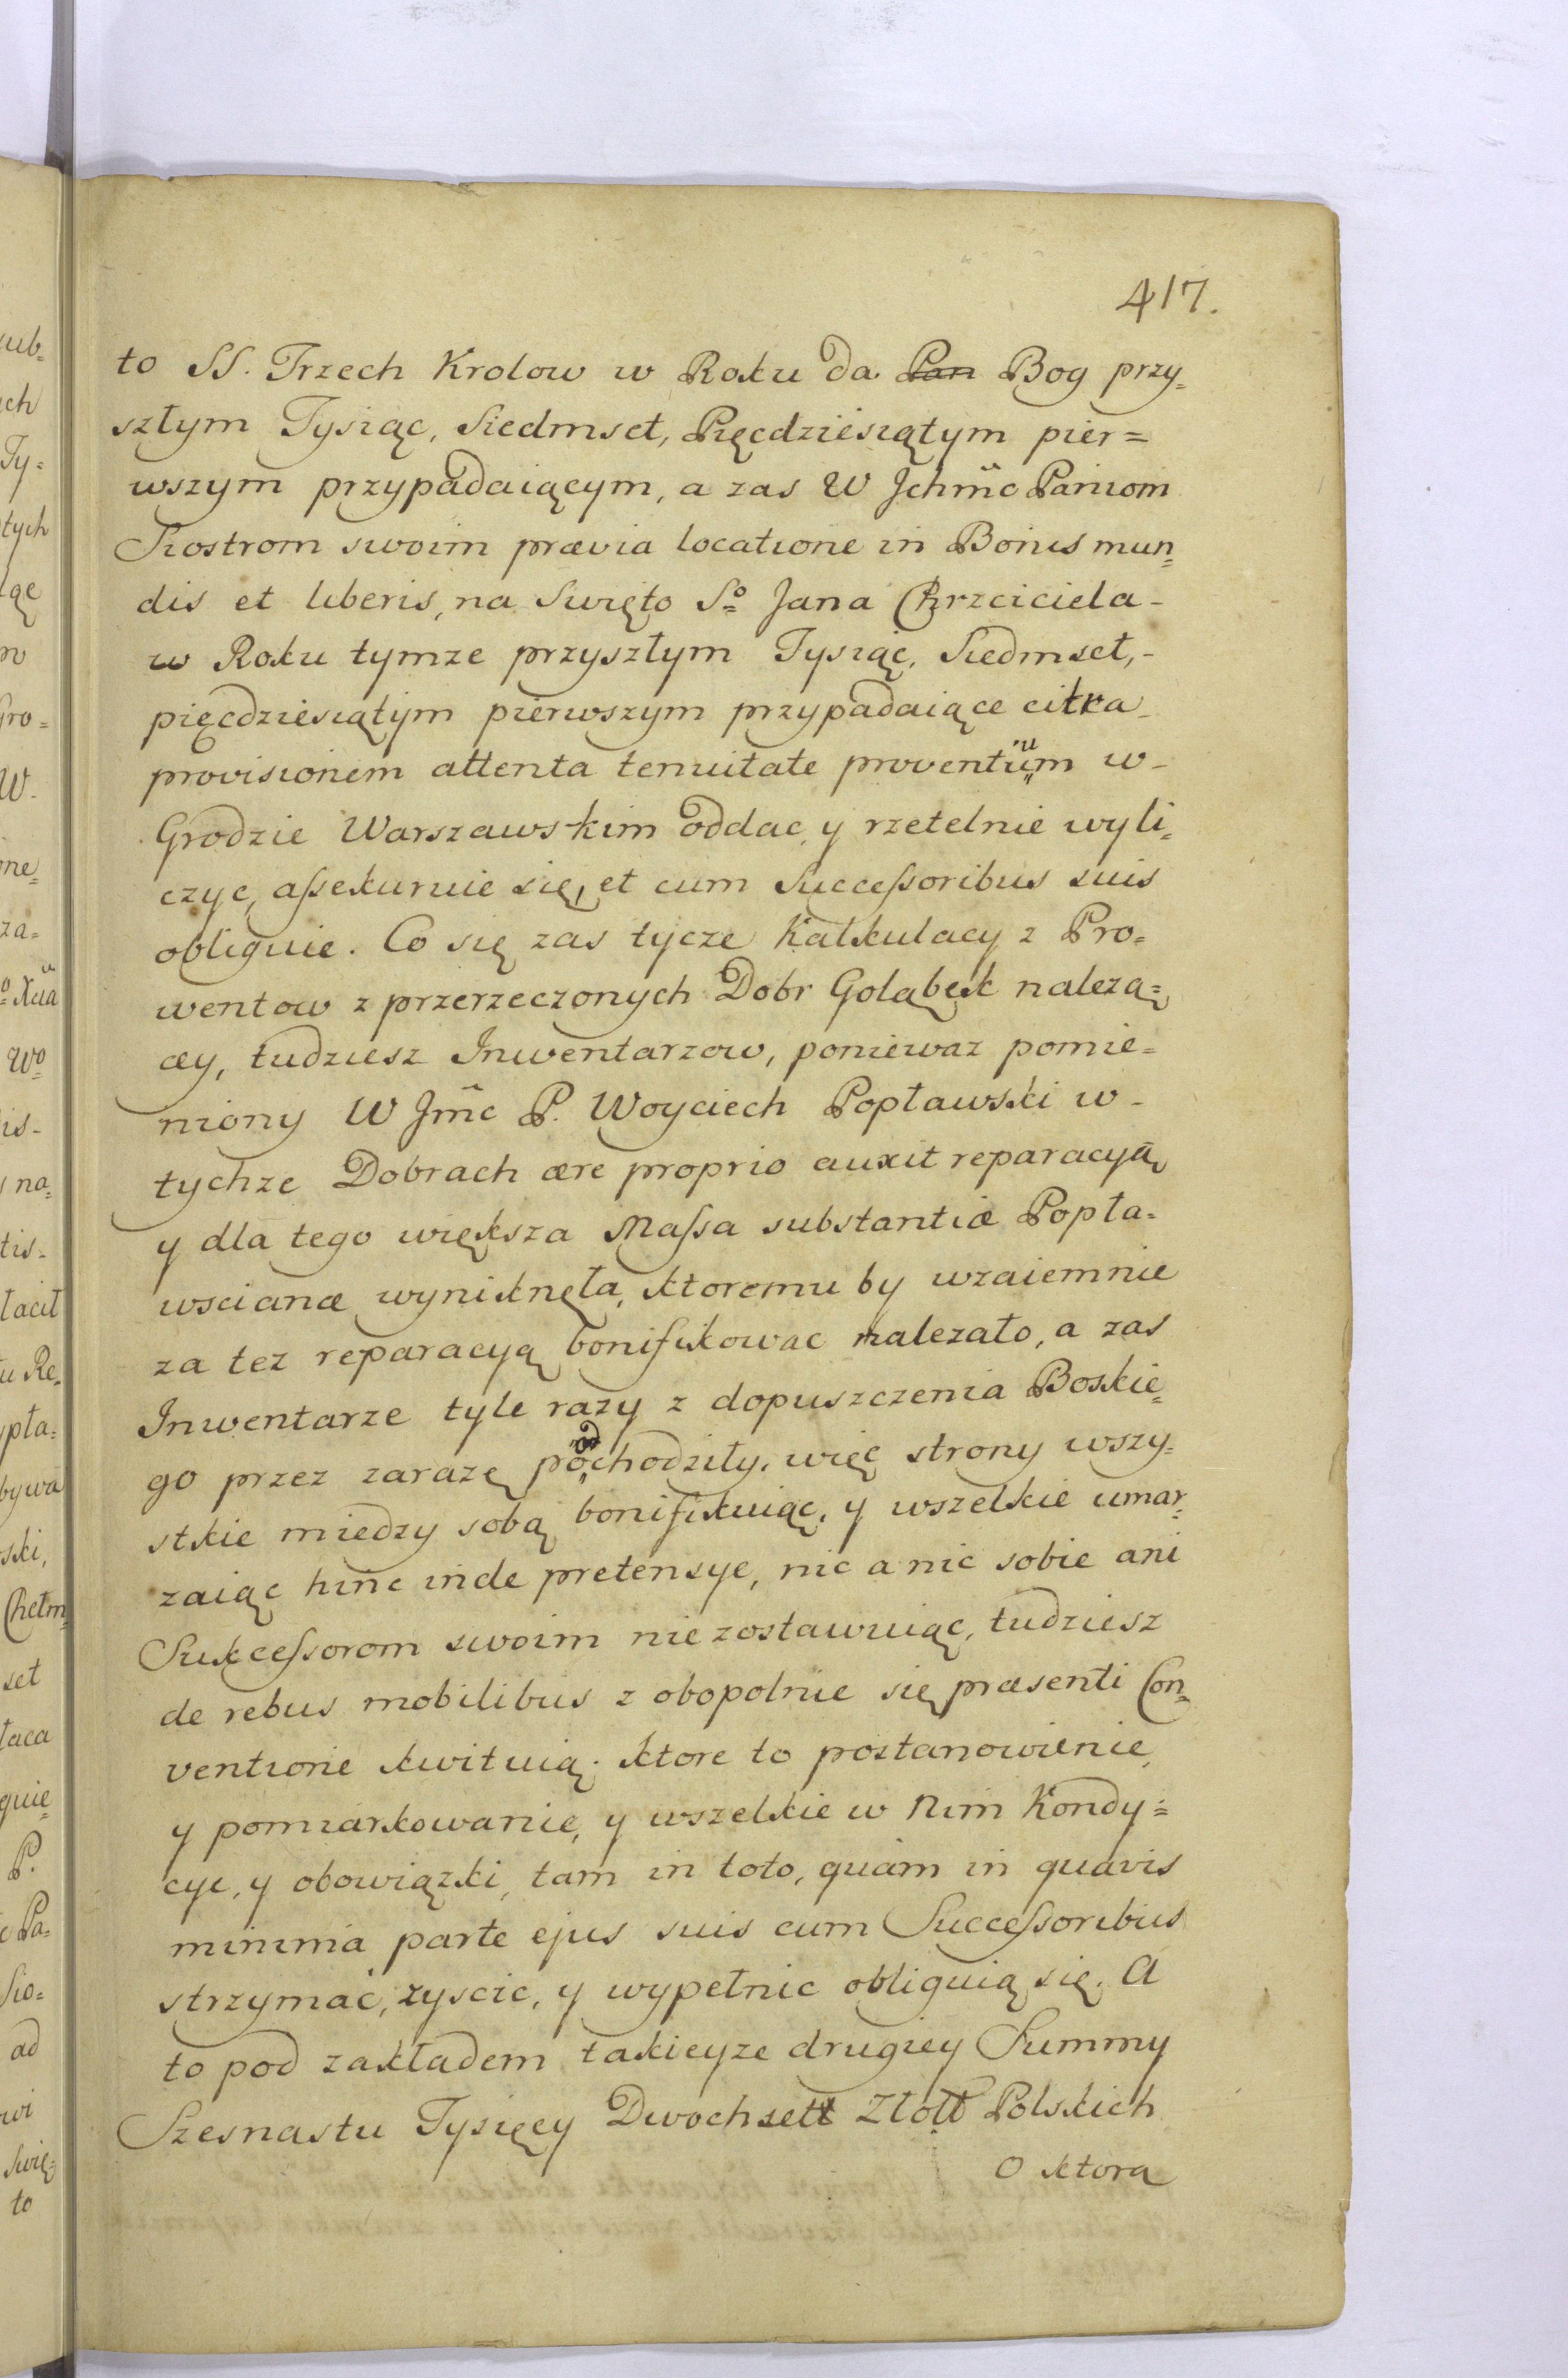 417.
to SS. Trzech Krolow w Roku da Pan Bog przy=
szłym Tysiąc, Siedmset, Pięcdziesiątym pier=
wszym przypadaiącym, a zas W Jchmc Paniom
Siostrom swoim prævia locatione in Bonis mun=
dis et liberis, na Swięto So Jana Chrzciciela-
w Roku tymze przyszłym Tysiąc, Siedmset,-
pięcdziesiątym pierwszym przypadaiące citra-
provisionem attenta tenuitate proventuum w-
Grodzie Warszawskim oddac, y rzetelnie wyli=
czyc, aſsekuruie się, et cum Succeſsoribus suis
obliguie. Co się zas tycze Kalkulacy z Pro=
wentow z przerzeczonych Dobr Gołąbek nalezą=
cey, tudziesz Inwentarzow, poniewaz pomie=
niony W Jmc P. Woyciech Popławski w-
tychze Dobrach ære proprio auxit reparacyą
y dla tego większa Maſsa substantiæ Popła=
wscianæ wyniknęła, ktoremu by wzaiemnie
za tez reparacyą bonifikowac nalezało, a zas
Inwentarze tyle razy z dopuszczenia Boskie=
go przez zarazę podchodziły, więc strony wszy=
stkie miedzy sobą bonifikuiąc, y wszelkie umar=
zaiąc hinc inde pretensye, nic a nic sobie ani
Sukceſsorom swoim nie zostawuiąc, tudziesz
de rebus mobilibus z obopolnie się præsenti Con=
ventione kwituią. ktore to postanowienie,
y pomiarkowanie, y wszelkie w nim Kondy=
cye, y obowiązki, tam in toto, quàm in quavis
minima parte ejus suis cum Succeſsoribus
strzymać, zyscic, y wypełnic obliguią się. A
to pod zakładem takieyze drugiey Summy
Szesnastu Tysięcy Dwochsett Złott Polskich
o ktora